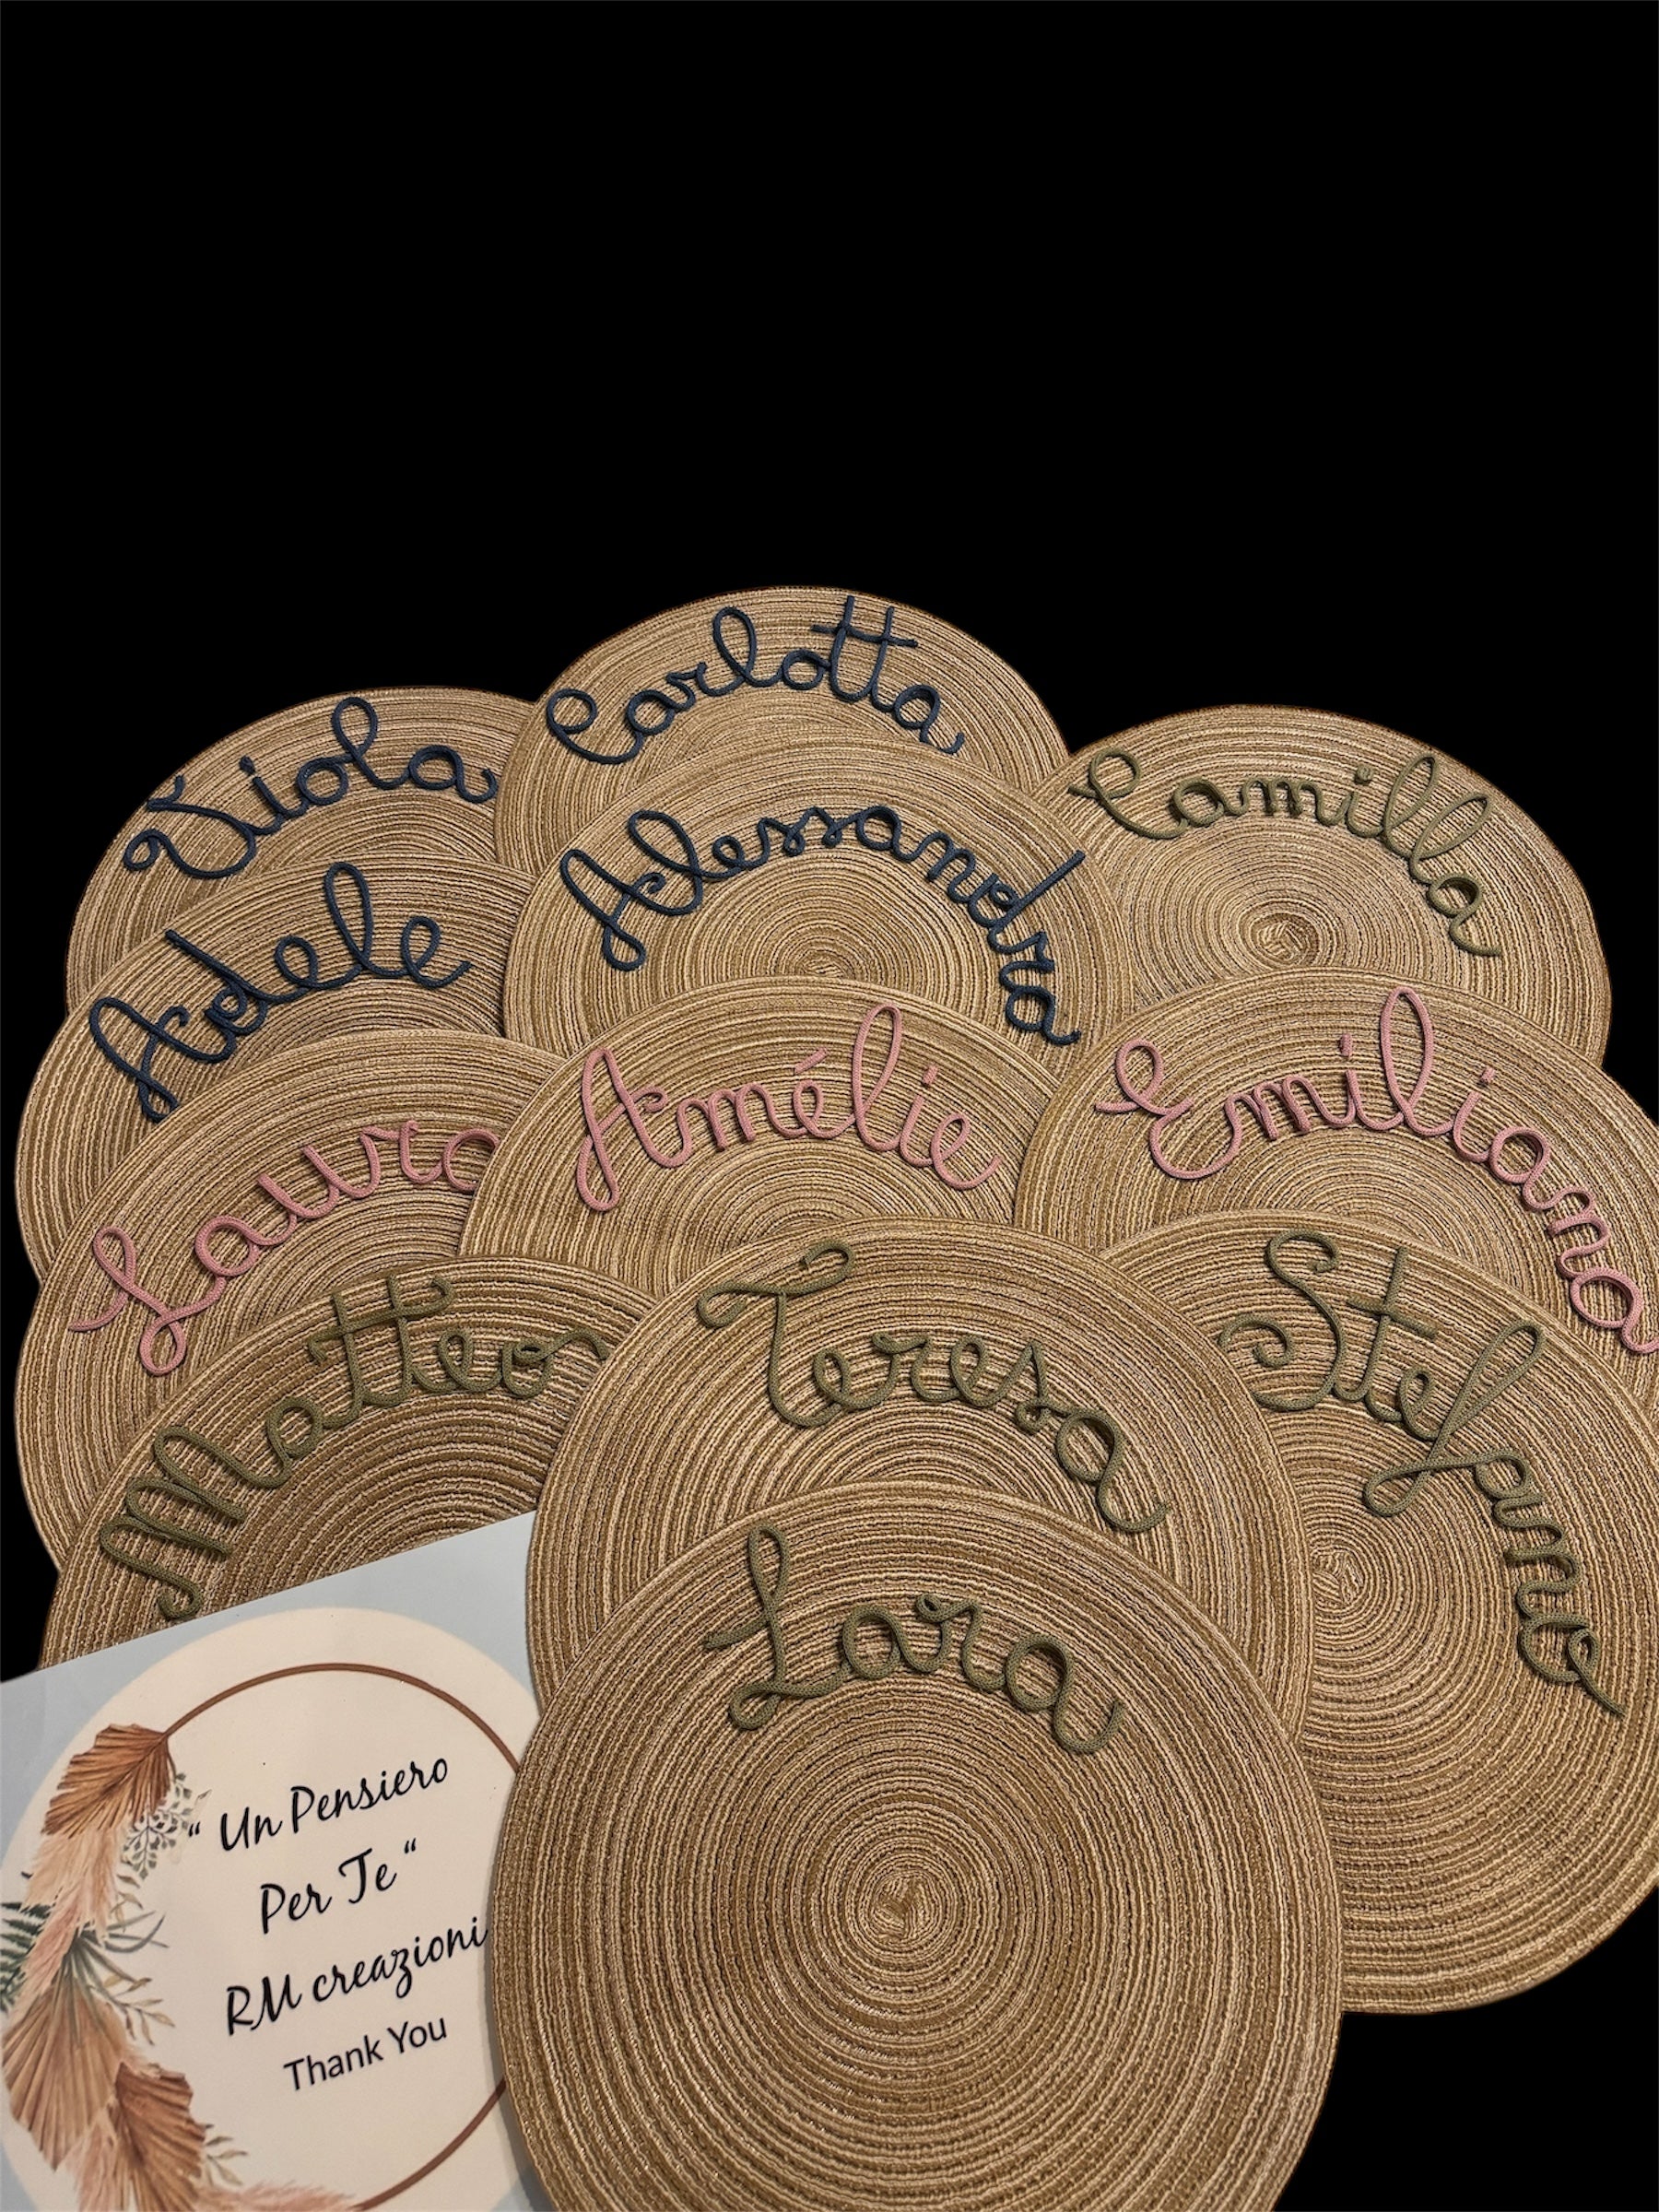 Carlotta
Viola
Camilla
Alessandra
Adele
Amélie
Emiliana
Laura
Matteo
Teresa
Stefano
Lara
“ Un Pensiero
Per Te “
RM creazioni
Thank You